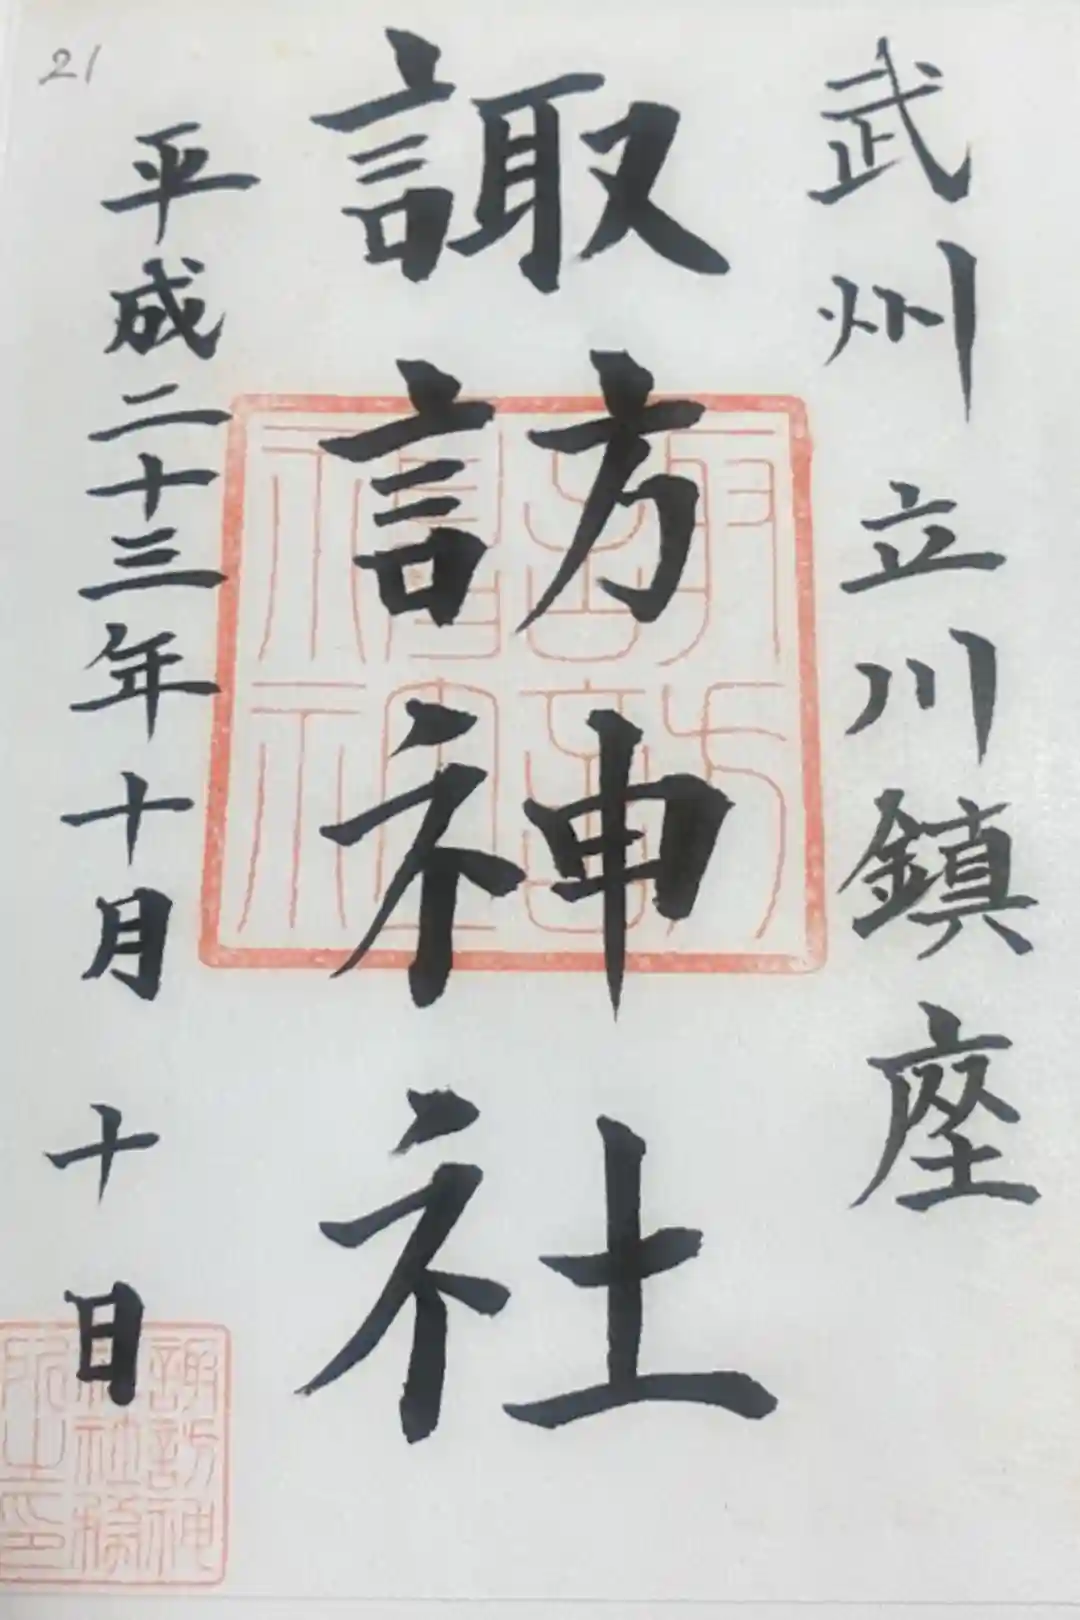 21
武州 立川鎮座
諏訪神社
平成二十三年十月 十日
諏訪神社
諏訪神
社務
所之印